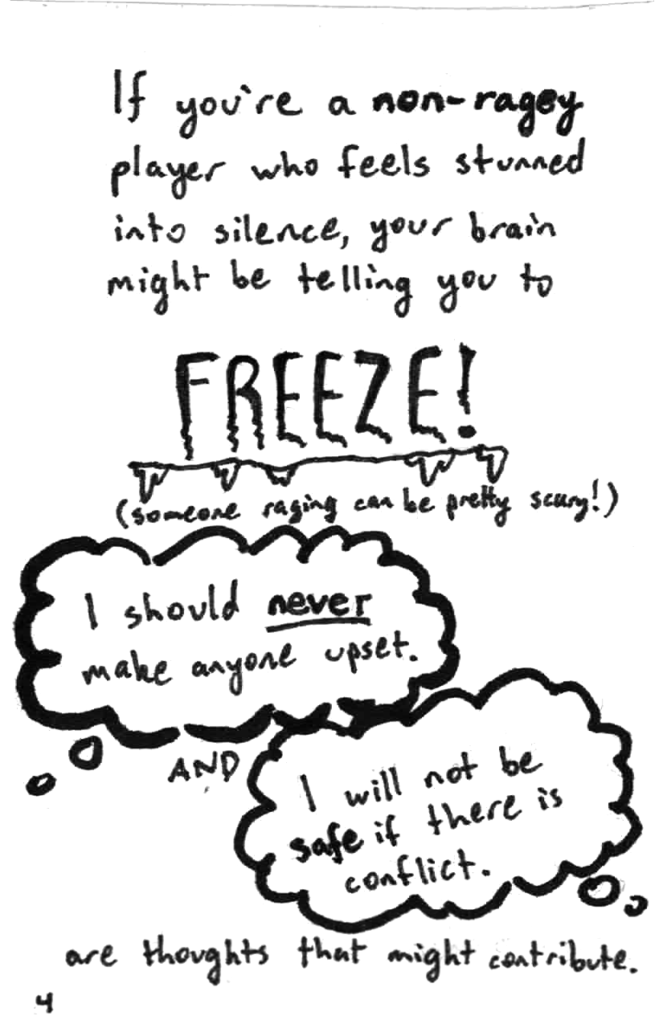 If you're a non-ragey
player who feels stunned
into silence, your brain
might be telling you to
FREEZE!
(someone raging can be pretty scary!)
I should never
make anyone upset.
AND
I will not be
safe if there is
conflict.
are thoughts that might contribute.
4